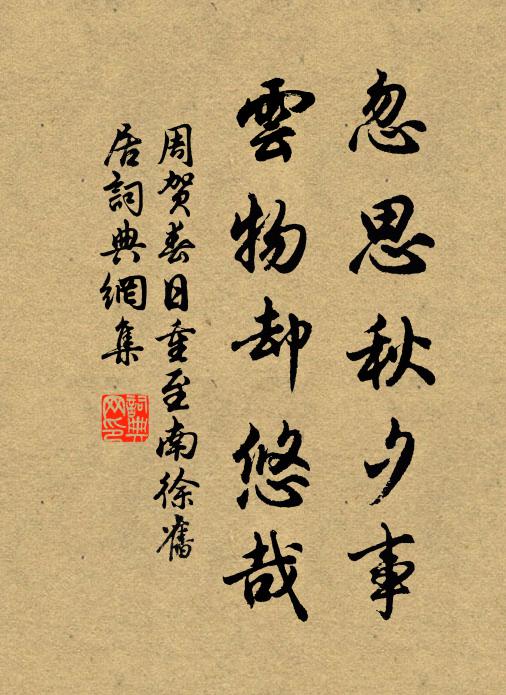 忽思秋夕事
雲物却悠哉
周賀春日重至南徐舊
居詞典網集
詞典
网印